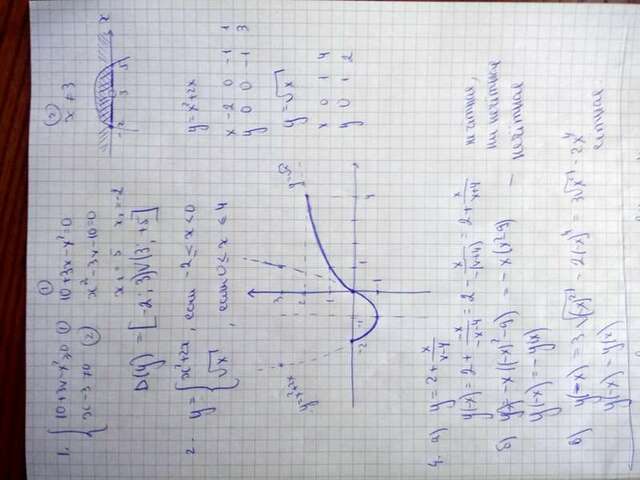 1. { 10+3x-x²≥0 (1)
x-3≠0 (2)
(1)
10+3x-x²=0
x²-3x-10=0
x₁=5 x₂=-2
(2)
x≠3
-2 3 5 x
D(y) = [-2; 3)∪(3; +5]
2. y = { x²+2x, если -2≤x<0
√x, если 0≤x≤4
y=x²+2x
x -2 0 -1 1
y 0 0 -1 3
y=√x
x 0 1 4
y 0 1 2
y=x²+2x
y=√x
3
2
1
-2 -1 1 4
-1
4. а) y=2+x/(x-4)
y(-x)=2+(-x)/(-x-4)=2-x/(-(x+4))=2+x/(x+4)
ни нечётная
б) = -x((-x)²-9) = -x(x²-9) - нечётная
y(-x) = -y(x)
в) y(-x) = 3√(-x)² - 2(-x)⁴ = 3√x² - 2x⁴
чётная.
y(-x) = y(x)